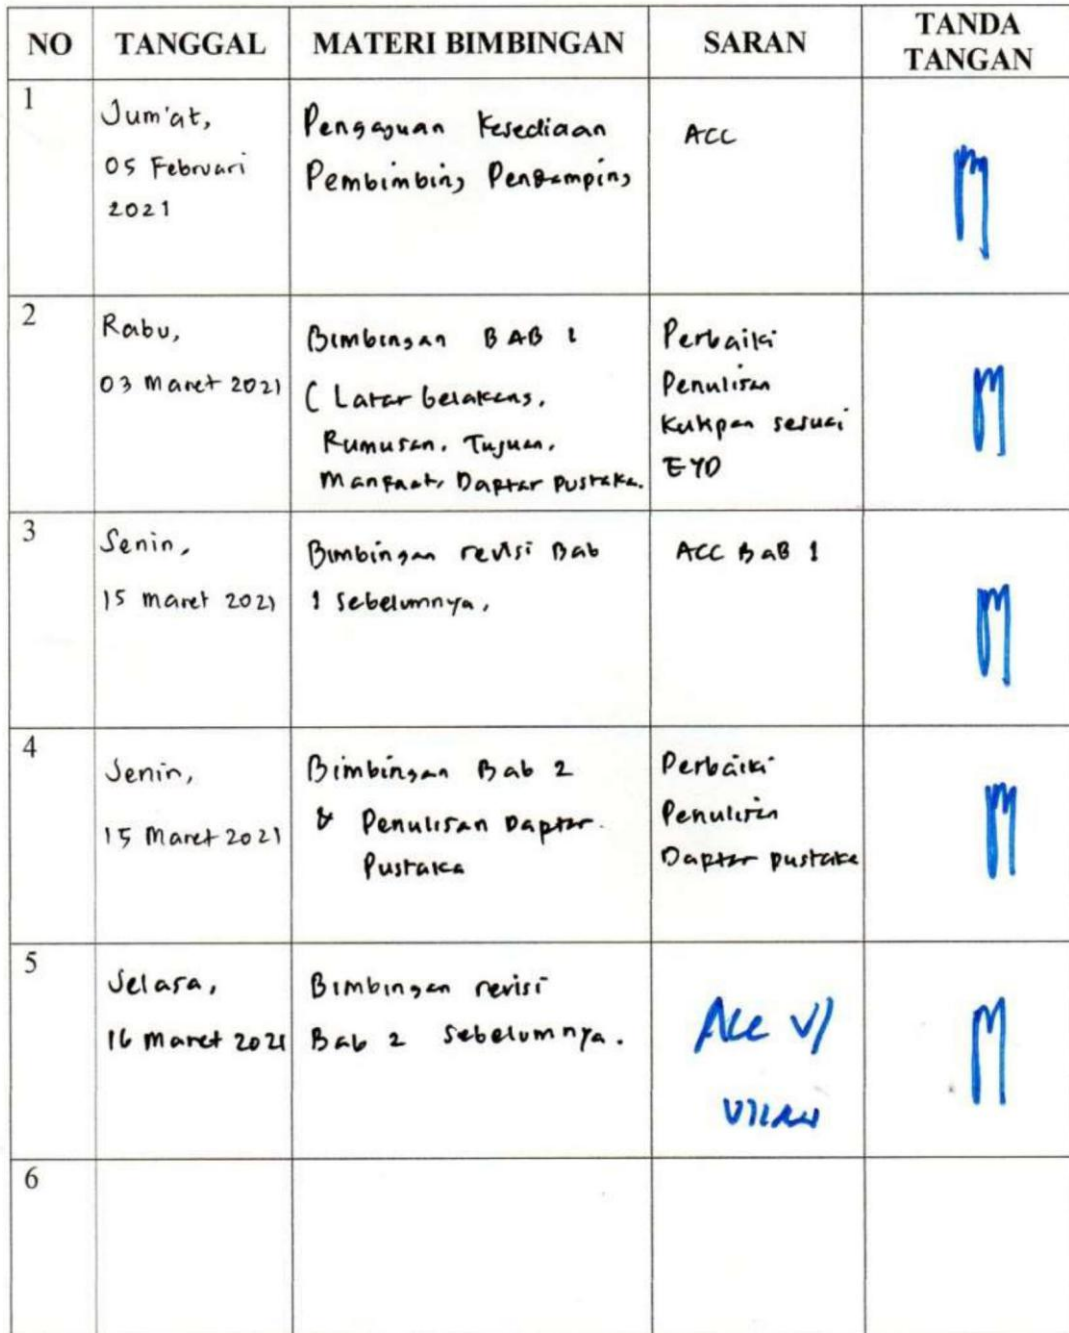 NO TANGGAL MATERI BIMBINGAN SARAN TANDA TANGAN
1
Jum'at,
05 Februari
2021
Pengajuan Kesediaan
Pembimbing Pendamping
ACC
2
Rabu,
03 Maret 2021
Bimbingan BAB 1
( Latar belakang,
Rumusan, Tujuan,
Manfaat, Daptar Pustaka.
Perbaiki
Penulisan
Kutipan sesuai
EYD
3
Senin,
15 Maret 2021
Bimbingan revisi Bab
1 sebelumnya,
ACC BAB 1
4
Senin,
15 Maret 2021
Bimbingan Bab 2
& Penulisan Daptar
Pustaka
Perbaiki
Penulisan
Daptar pustaka
5
Selasa,
16 Maret 2021
Bimbingan revisi
Bab 2 sebelumnya.
Acc
6